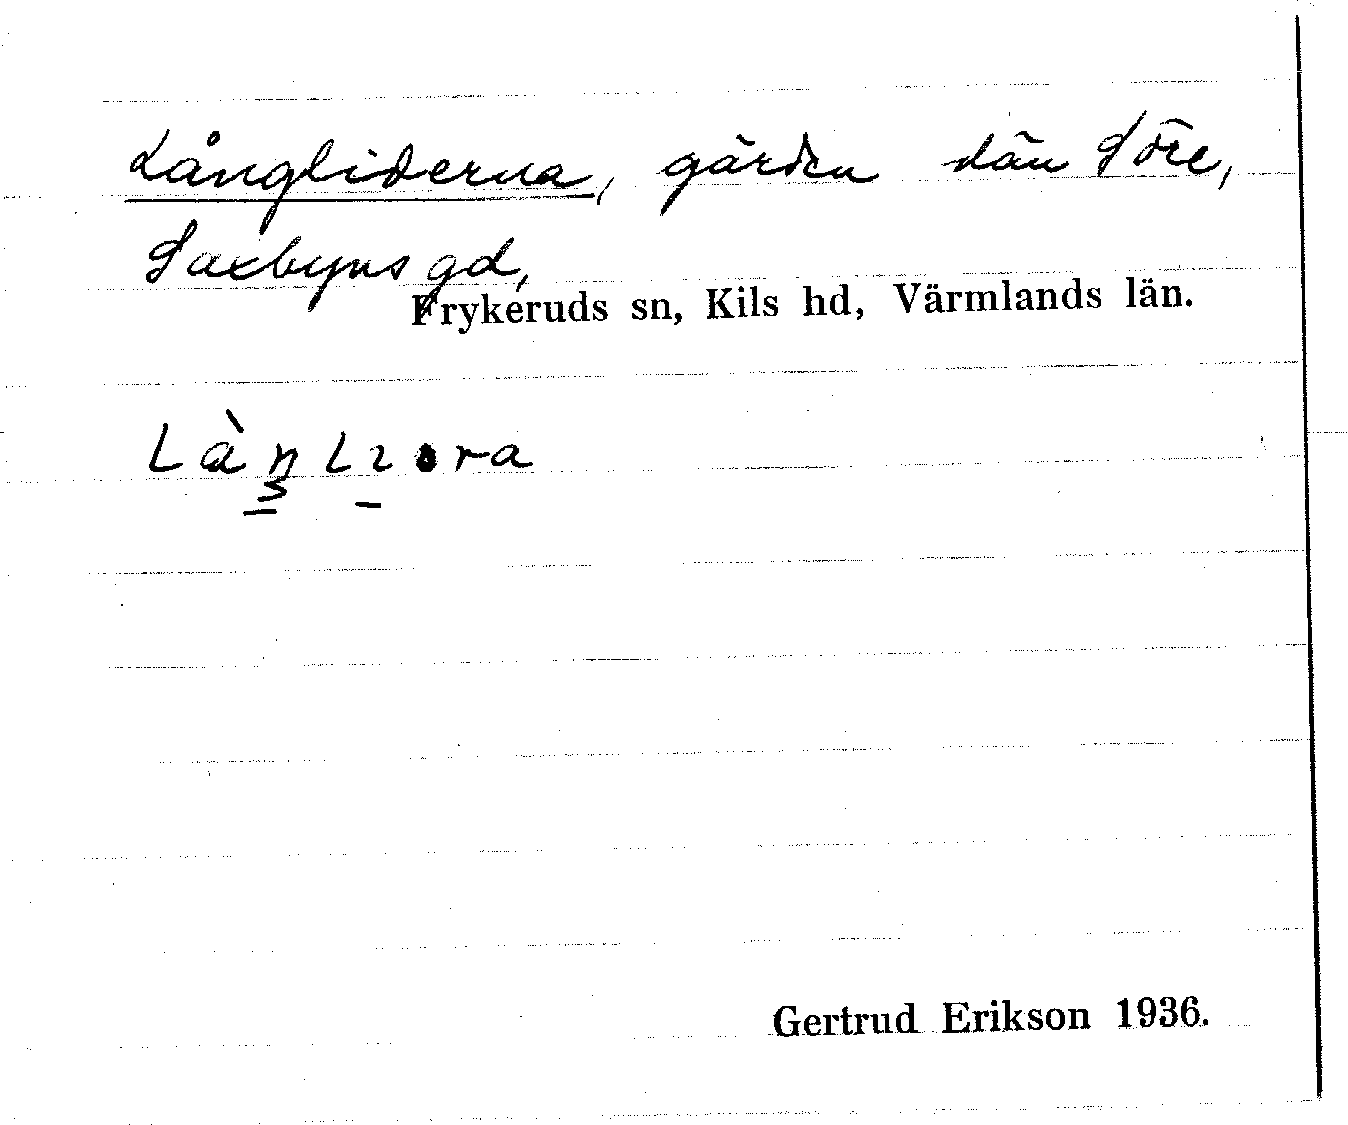 Långliderna, gärden dän Söre,
Saxbyns gd,
Frykeruds sn, Kils hd, Värmlands län.
Gertrud Erikson 1936.